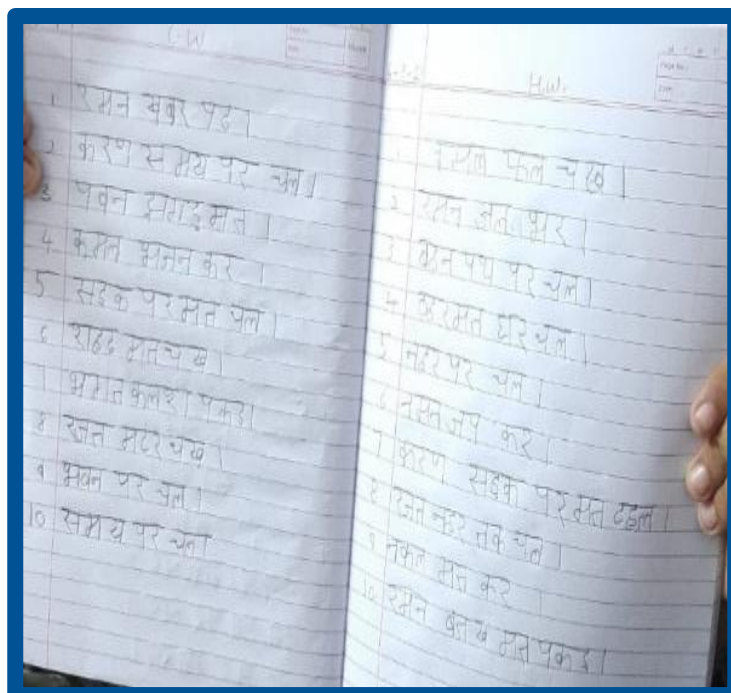 C.W
1 रमन खबर पढ।
2 करण समय पर चल।
3 पवन झगड मत।
4 कमल भजन कर।
5 सडक पर मत चल
6 शहद मत चख।
7 भगत कलश पकड।
8 रजत मटर चख।
9 भवन पर चल।
10 समय पर चल
H.W.
1 फल चख।
2 रमन जल भर।
3 पथ पर चल।
4 घर चल।
5 नहर पर चल।
6 जप कर।
7 करण सडक पर मत टहल।
8 रजत नहर तक चल।
9 नकल मत कर
10 रमन मत पकड।